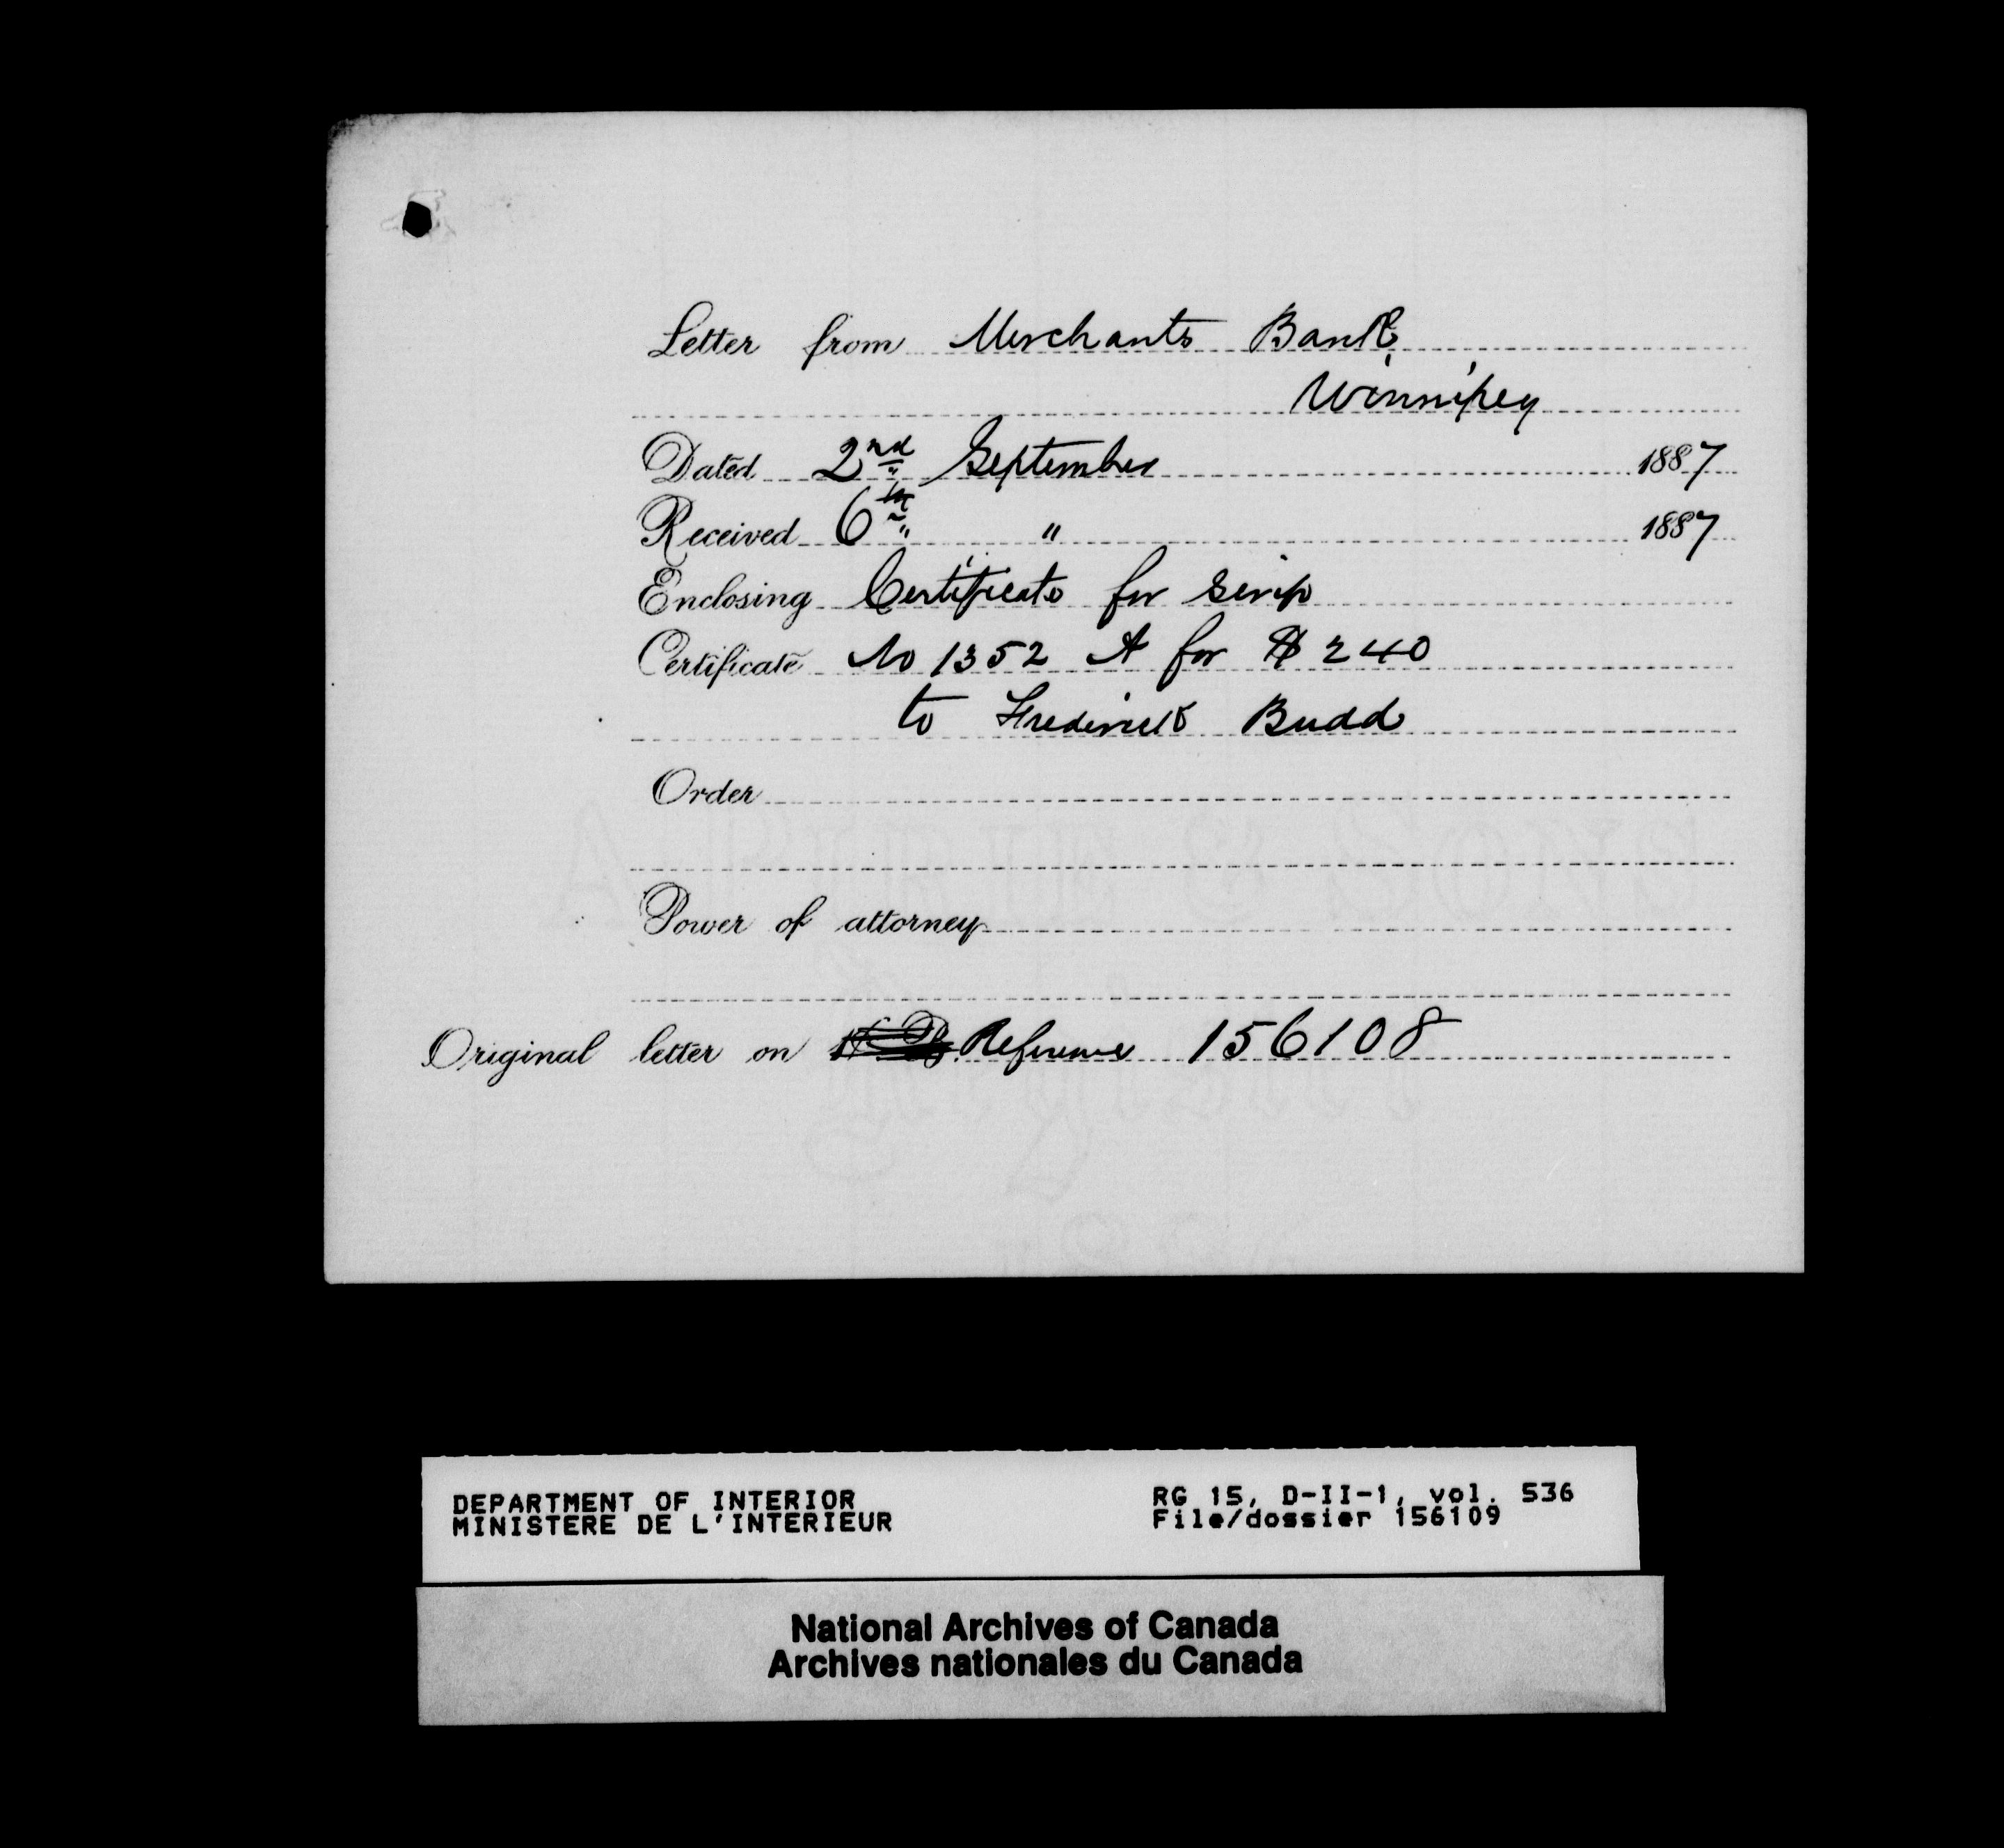 Letter from Merchants Bank,
Winnipeg
Dated 2nd September 1887
Received 6th " 1887
Enclosing Certificate for Scrip
Certificate No 1352 A for $240
to Frederick Budd
Order
Power of attorney
Original letter on Reference 156108
DEPARTMENT OF INTERIOR
MINISTERE DE L'INTERIEUR
RG 15, D-II-1, vol. 536
File/dossier 156109
National Archives of Canada
Archives nationales du Canada